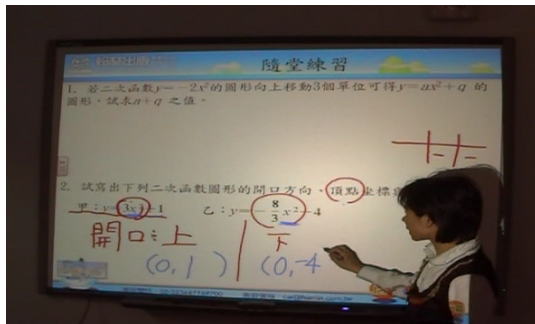 隨堂練習
1. 若二次函數y=-2x²的圖形向上移動3個單位可得y=ax²+q 的
圖形，試求a+q 之值。
2. 試寫出下列二次函數圖形的開口方向、頂點坐標
甲：y=3x²+1 乙：y=-8/3x²-4
開口：上 下
(0,1) (0,-4